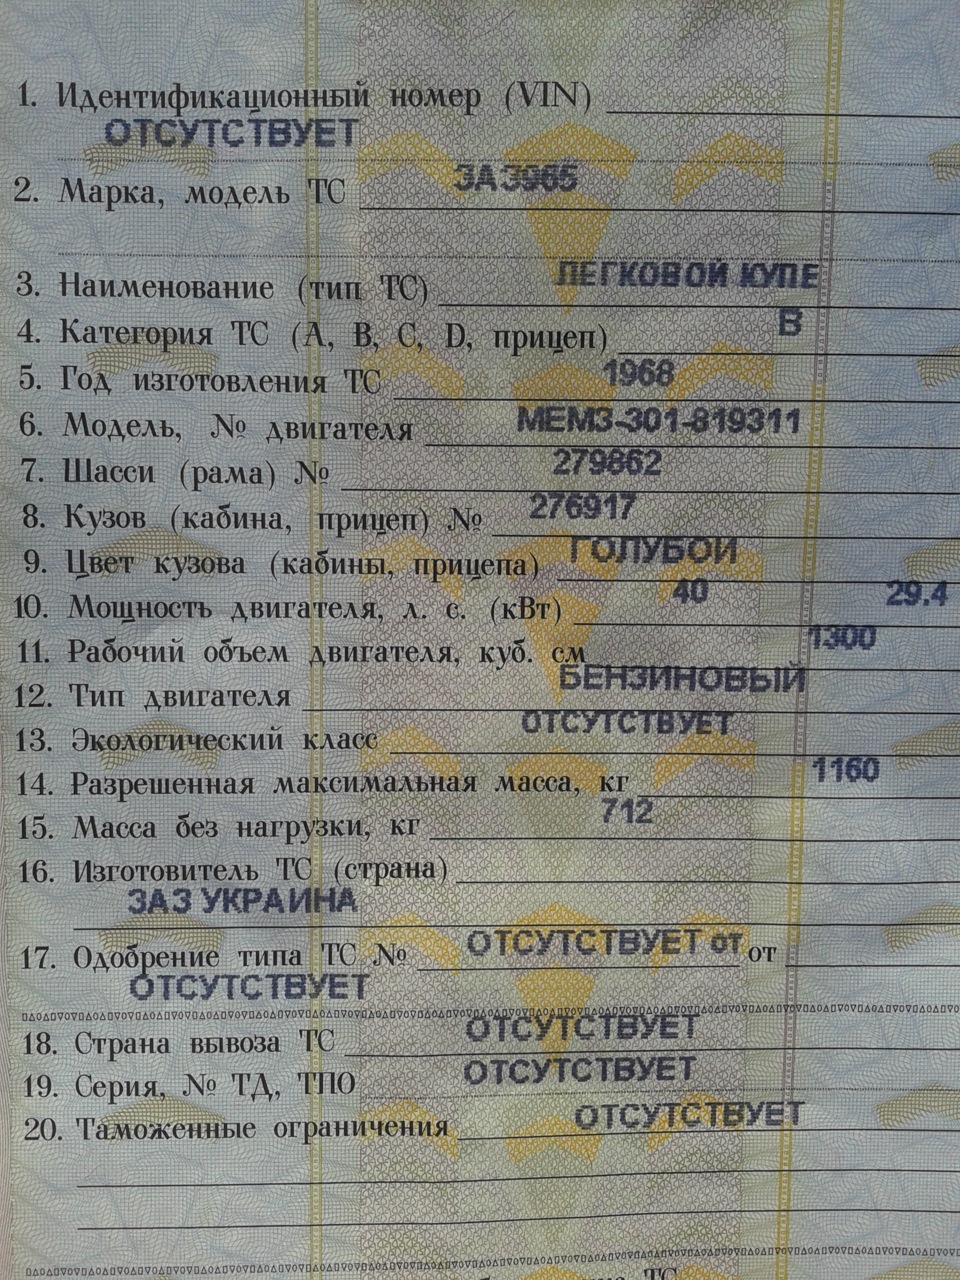 1. Идентификационный номер (VIN)
ОТСУТСТВУЕТ
2. Марка, модель ТС ЗАЗ965
3. Наименование (тип ТС) ЛЕГКОВОЙ КУПЕ
4. Категория ТС (A, B, C, D, прицеп) B
5. Год изготовления ТС 1968
6. Модель, № двигателя МЕМЗ-301-819311
7. Шасси (рама) № 279862
8. Кузов (кабина, прицеп) № 276917
9. Цвет кузова (кабины, прицепа) ГОЛУБОЙ
10. Мощность двигателя, л. с. (кВт) 40 29.4
11. Рабочий объем двигателя, куб. см 1300
12. Тип двигателя БЕНЗИНОВЫЙ
13. Экологический класс ОТСУТСТВУЕТ
14. Разрешенная максимальная масса, кг 1160
15. Масса без нагрузки, кг 712
16. Изготовитель ТС (страна)
ЗАЗ УКРАИНА
17. Одобрение типа ТС № ОТСУТСТВУЕТ от от
ОТСУТСТВУЕТ
18. Страна вывоза ТС ОТСУТСТВУЕТ
19. Серия, № ТД, ТПО ОТСУТСТВУЕТ
20. Таможенные ограничения ОТСУТСТВУЕТ